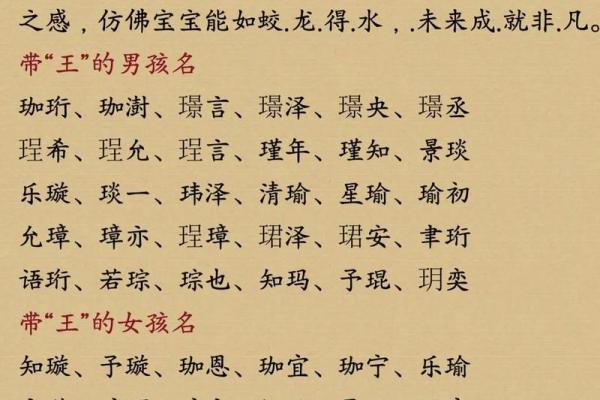 之感，仿佛宝宝能如蛟.龙.得.水，.未来成.就非.凡。
带“王”的男孩名
珈珩、珈澍、璟言、璟泽、璟央、璟丞
珵希、珵允、珵言、瑾年、瑾知、景琰
乐璇、琰一、玮泽、清瑜、星瑜、瑜初
允璋、璋亦、珵璋、珺泽、珺安、聿珩
语珩、若琮、琮也、知玛、予琨、玥奕
带“王”的女孩名
知璇、予璇、珈恩、珈宜、珈宁、乐瑜